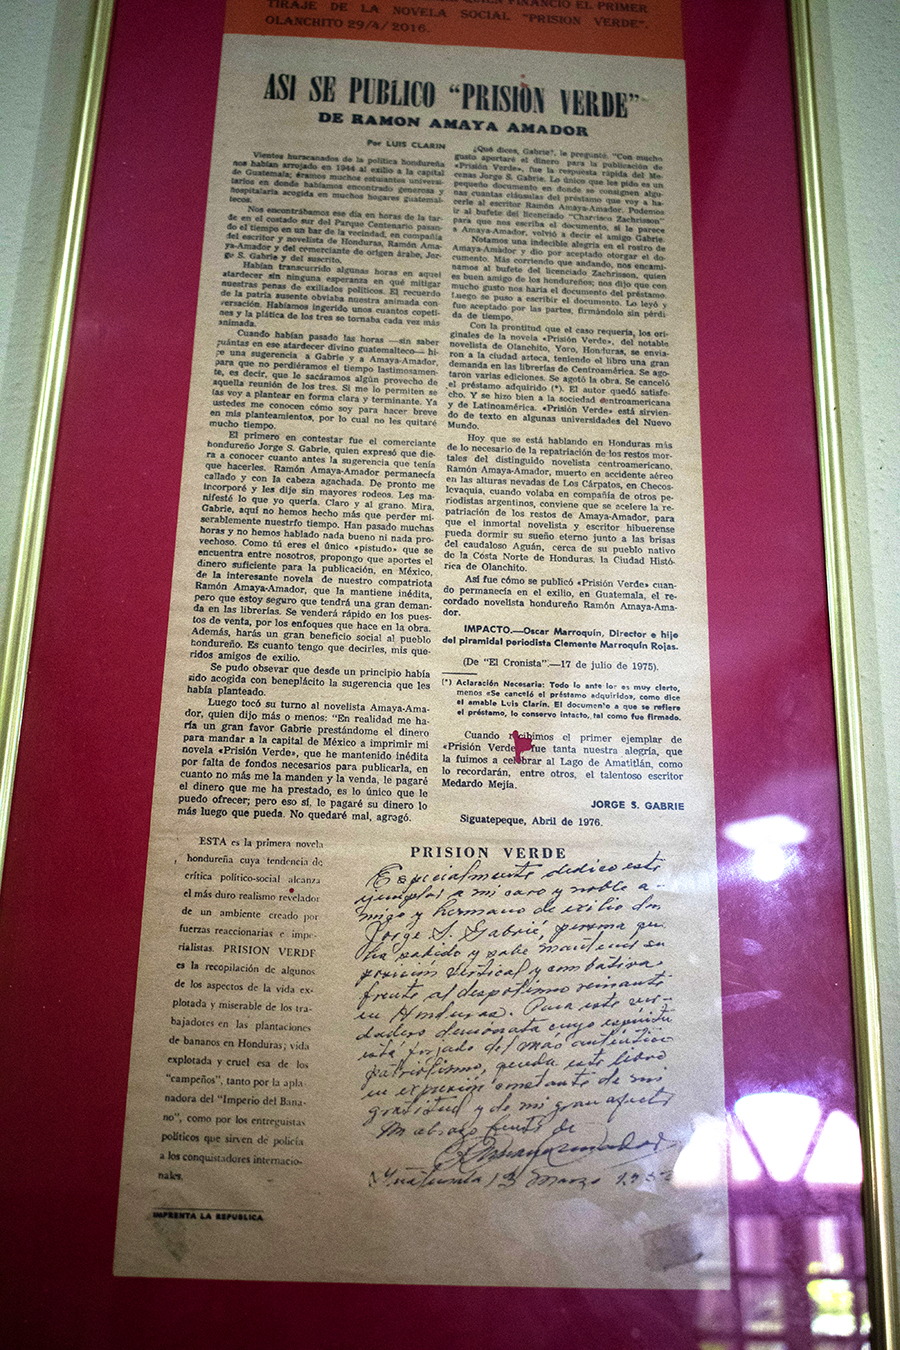 QUIEN FINANCIO EL PRIMER
TIRAJE DE LA NOVELA SOCIAL "PRISION VERDE".
OLANCHITO 29/4/2016.
ASI SE PUBLICO "PRISION VERDE"
DE RAMON AMAYA AMADOR
Por LUIS CLARIN
Vientos huracanados de la política hondureña
nos habían arrojado en 1944 al exilio a la capital
de Guatemala; éramos muchos estudiantes universi-
tarios en donde habíamos encontrado generosa y
hospitalaria acogida en muchos hogares guatemal-
tecos.
Nos encontrábamos ese día en horas de la tar-
de en el costado sur del Parque Centenario pasan-
do el tiempo en un bar de la vecindad, en compañía
del escritor y novelista de Honduras, Ramón Ama-
ya-Amador y del comerciante de origen árabe, Jor-
ge S. Gabrie y del suscrito.
Habían transcurrido algunas horas en aquel
atardecer sin ninguna esperanza en qué mitigar
nuestras penas de exiliados políticos. El recuerdo
de la patria ausente obviaba nuestra animada con-
versación. Habíamos ingerido unos cuantos copeti-
nes y la plática de los tres se tornaba cada vez más
animada.
Cuando habían pasado las horas —sin saber
cuántas en ese atardecer divino guatemalteco— hi-
ce una sugerencia a Gabrie y a Amaya-Amador,
para que no perdiéramos el tiempo lastimosamen-
te, es decir, que le sacáramos algún provecho de
aquella reunión de los tres. Si me lo permiten se
las voy a plantear en forma clara y terminante. Ya
ustedes me conocen cómo soy para hacer breve
en mis planteamientos, por lo cual no les quitaré
mucho tiempo.
El primero en contestar fue el comerciante
hondureño Jorge S. Gabrie, quien expresó que die-
ra a conocer cuanto antes la sugerencia que tenía
que hacerles. Ramón Amaya-Amador permanecía
callado y con la cabeza agachada. De pronto me
incorporé y les dije sin mayores rodeos. Les ma-
nifesté lo que yo quería. Claro y al grano. Mira,
Gabrie, aquí no hemos hecho más que perder mi-
serablemente nuestrfo tiempo. Han pasado muchas
horas y no hemos hablado nada bueno ni nada pro-
vechoso. Como tú eres el único «pistudo» que se
encuentra entre nosotros, propongo que aportes el
dinero suficiente para la publicación, en México,
de la interesante novela de nuestro compatriota
Ramón Amaya-Amador, que la mantiene inédita,
pero que estoy seguro que tendrá una gran deman-
da en las librerías. Se venderá rápido en los pues-
tos de venta, por los enfoques que hace en la obra.
Además, harás un gran beneficio social al pueblo
hondureño. Es cuanto tengo que decirles, mis que-
ridos amigos de exilio.
Se pudo obsevar que desde un principio había
sido acogida con beneplácito la sugerencia que les
había planteado.
Luego tocó su turno al novelista Amaya-Ama-
dor, quien dijo más o menos: "En realidad me ha-
ría un gran favor Gabrie prestándome el dinero
para mandar a la capital de México a imprimir mi
novela «Prisión Verde», que he mantenido inédita
por falta de fondos necesarios para publicarla, en
cuanto no más me la manden y la venda, le pagaré
el dinero que me ha prestado, es lo único que le
puedo ofrecer; pero eso sí, le pagaré su dinero lo
más luego que pueda. No quedaré mal, agragó.
¿Qué dices, Gabrie", le pregunté. "Con mucho
gusto aportaré el dinero para la publicación de
«Prisión Verde», fue la respuesta rápida del Me-
cenas Jorge S. Gabrie. Lo único que les pido es un
pequeño documento en donde se consignen algu-
nas cuantas cláusulas del préstamo que voy a ha-
cerle al escritor Ramón Amaya-Amador. Podemos
ir al bufete del licenciado "Charrisco Zachrisson"
para que nos escriba el documento, si le parece
a Amaya-Amador, volvió a decir el amigo Gabrie.
Notamos una indecible alegría en el rostro de
Amaya-Amador y dio por aceptado otorgar el do-
cumento. Más corriendo que andando, nos encami-
namos al bufete del licenciado Zachrisson, quien
es buen amigo de los hondureños; nos dijo que con
mucho gusto nos haría el documento del préstamo.
Luego se puso a escribir el documento. Lo leyó y
fue aceptado por las partes, firmándolo sin pérdi-
da de tiempo.
Con la prontitud que el caso requería, los ori-
ginales de la novela «Prisión Verde», del notable
novelista de Olanchito, Yoro, Honduras, se envia-
ron a la ciudad azteca, teniendo el libro una gran
demanda en las librerías de Centroamérica. Se ago-
taron varias ediciones. Se agotó la obra. Se canceló
el préstamo adquirido (*). El autor quedó satisfe-
cho. Y se hizo bien a la sociedad centroamericana
y de Latinoamérica. «Prisión Verde» está sirvien-
do de texto en algunas universidades del Nuevo
Mundo.
Hoy que se está hablando en Honduras más
de lo necesario de la repatriación de los restos mor-
tales del distinguido novelista centroamericano,
Ramón Amaya-Amador, muerto en accidente aéreo
en las alturas nevadas de Los Cárpatos, en Checos-
levaquia, cuando volaba en compañía de otros pe-
riodistas argentinos, conviene que se acelere la re-
patriación de los restos de Amaya-Amador, para
que el inmortal novelista y escritor hibuerense
pueda dormir su sueño eterno junto a las brisas
del caudaloso Aguán, cerca de su pueblo nativo
de la Costa Norte de Honduras, la Ciudad Histó-
rica de Olanchito.
Así fue cómo se publicó «Prisión Verde» cuan-
do permanecía en el exilio, en Guatemala, el re-
cordado novelista hondureño Ramón Amaya-Ama-
dor.
IMPACTO.—Oscar Marroquín, Director e hijo
del piramidal periodista Clemente Marroquín Rojas.
(De "El Cronista".—17 de julio de 1975).
(*) Aclaración Necesaria: Todo lo anterior es muy cierto,
menos «Se canceló el préstamo adquirido», como dice
el amable Luis Clarín. El documento a que se refiere
el préstamo, lo conservo intacto, tal como fue firmado.
Cuando recibimos el primer ejemplar de
«Prisión Verde» fue tanta nuestra alegría, que
la fuimos a celebrar al Lago de Amatitlán, como
lo recordarán, entre otros, el talentoso escritor
Medardo Mejía.
JORGE S. GABRIE
Siguatepeque, Abril de 1976.
ESTA es la primera novela
hondureña cuya tendencia de
crítica político-social alcanza
el más duro realismo revelador
de un ambiente creado por
fuerzas reaccionarias e impe-
rialistas. PRISION VERDE
es la recopilación de algunos
de los aspectos de la vida ex-
plotada y miserable de los tra-
bajadores en las plantaciones
de bananos en Honduras; vida
explotada y cruel esa de los
"campeños", tanto por la apla-
nadora del "Imperio del Bana-
no", como por los entreguistas
políticos que sirven de policía
a los conquistadores internacio-
nales.
IMPRENTA LA REPUBLICA
PRISION VERDE
Especialmente dedico este
ejemplar a mi caro y noble a-
migo y hermano de exilio don
Jorge S. Gabrié, persona que
ha sabido y sabe mantener su
posición vertical y combativa
frente al despotismo reinante
en Honduras. Para este ver-
dadero demócrata cuyo espíritu
está forjado del más auténtico
patriotismo, queda este libro
en expresión constante de mi
gratitud y de mi gran afecto
Un abrazo fuerte de
R Amaya Amador
Guatemala 13 Marzo 195